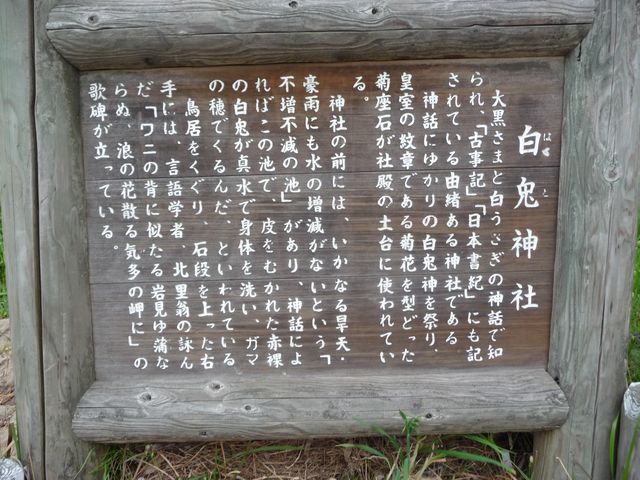 白兎神社
はく と
大黒さまと白うさぎの神話で知
られ、「古事記」「日本書紀」にも記
されている由緒ある神社である
神話にゆかりの白兎神を祭り、
皇室の紋章である菊花を型どった
菊座石が社殿の土台に使われてい
る。
神社の前には、いかなる旱天・
豪雨にも水の増減がないという「
不増不減の池」があり、神話によ
ればこの池で、皮をむかれた赤裸
の白兎が真水で身体を洗い、ガマ
の穂でくるんだ、といわれている
鳥居をくぐり、石段を上った右
手には、言語学者、北里翁の詠ん
だ「ワニの背に似たる岩見ゆ蒲な
らぬ、浪の花散る気多の岬に」の
歌碑が立っている。